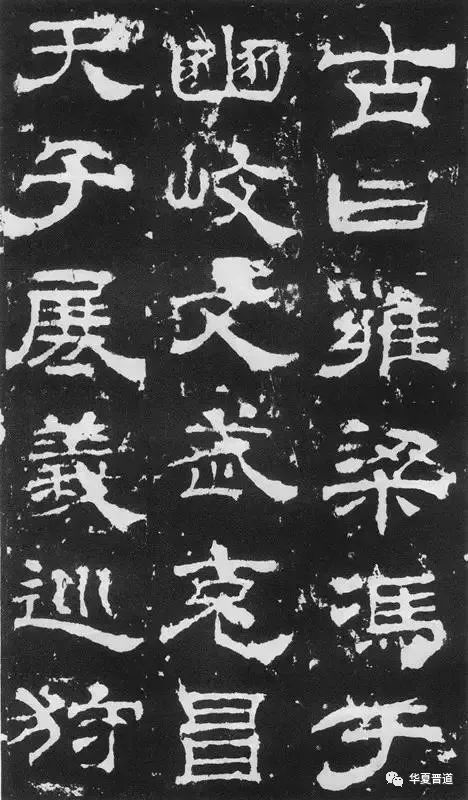 古曰雍梁馮于
豳岐文武克昌
天子展義巡狩
华夏晋道